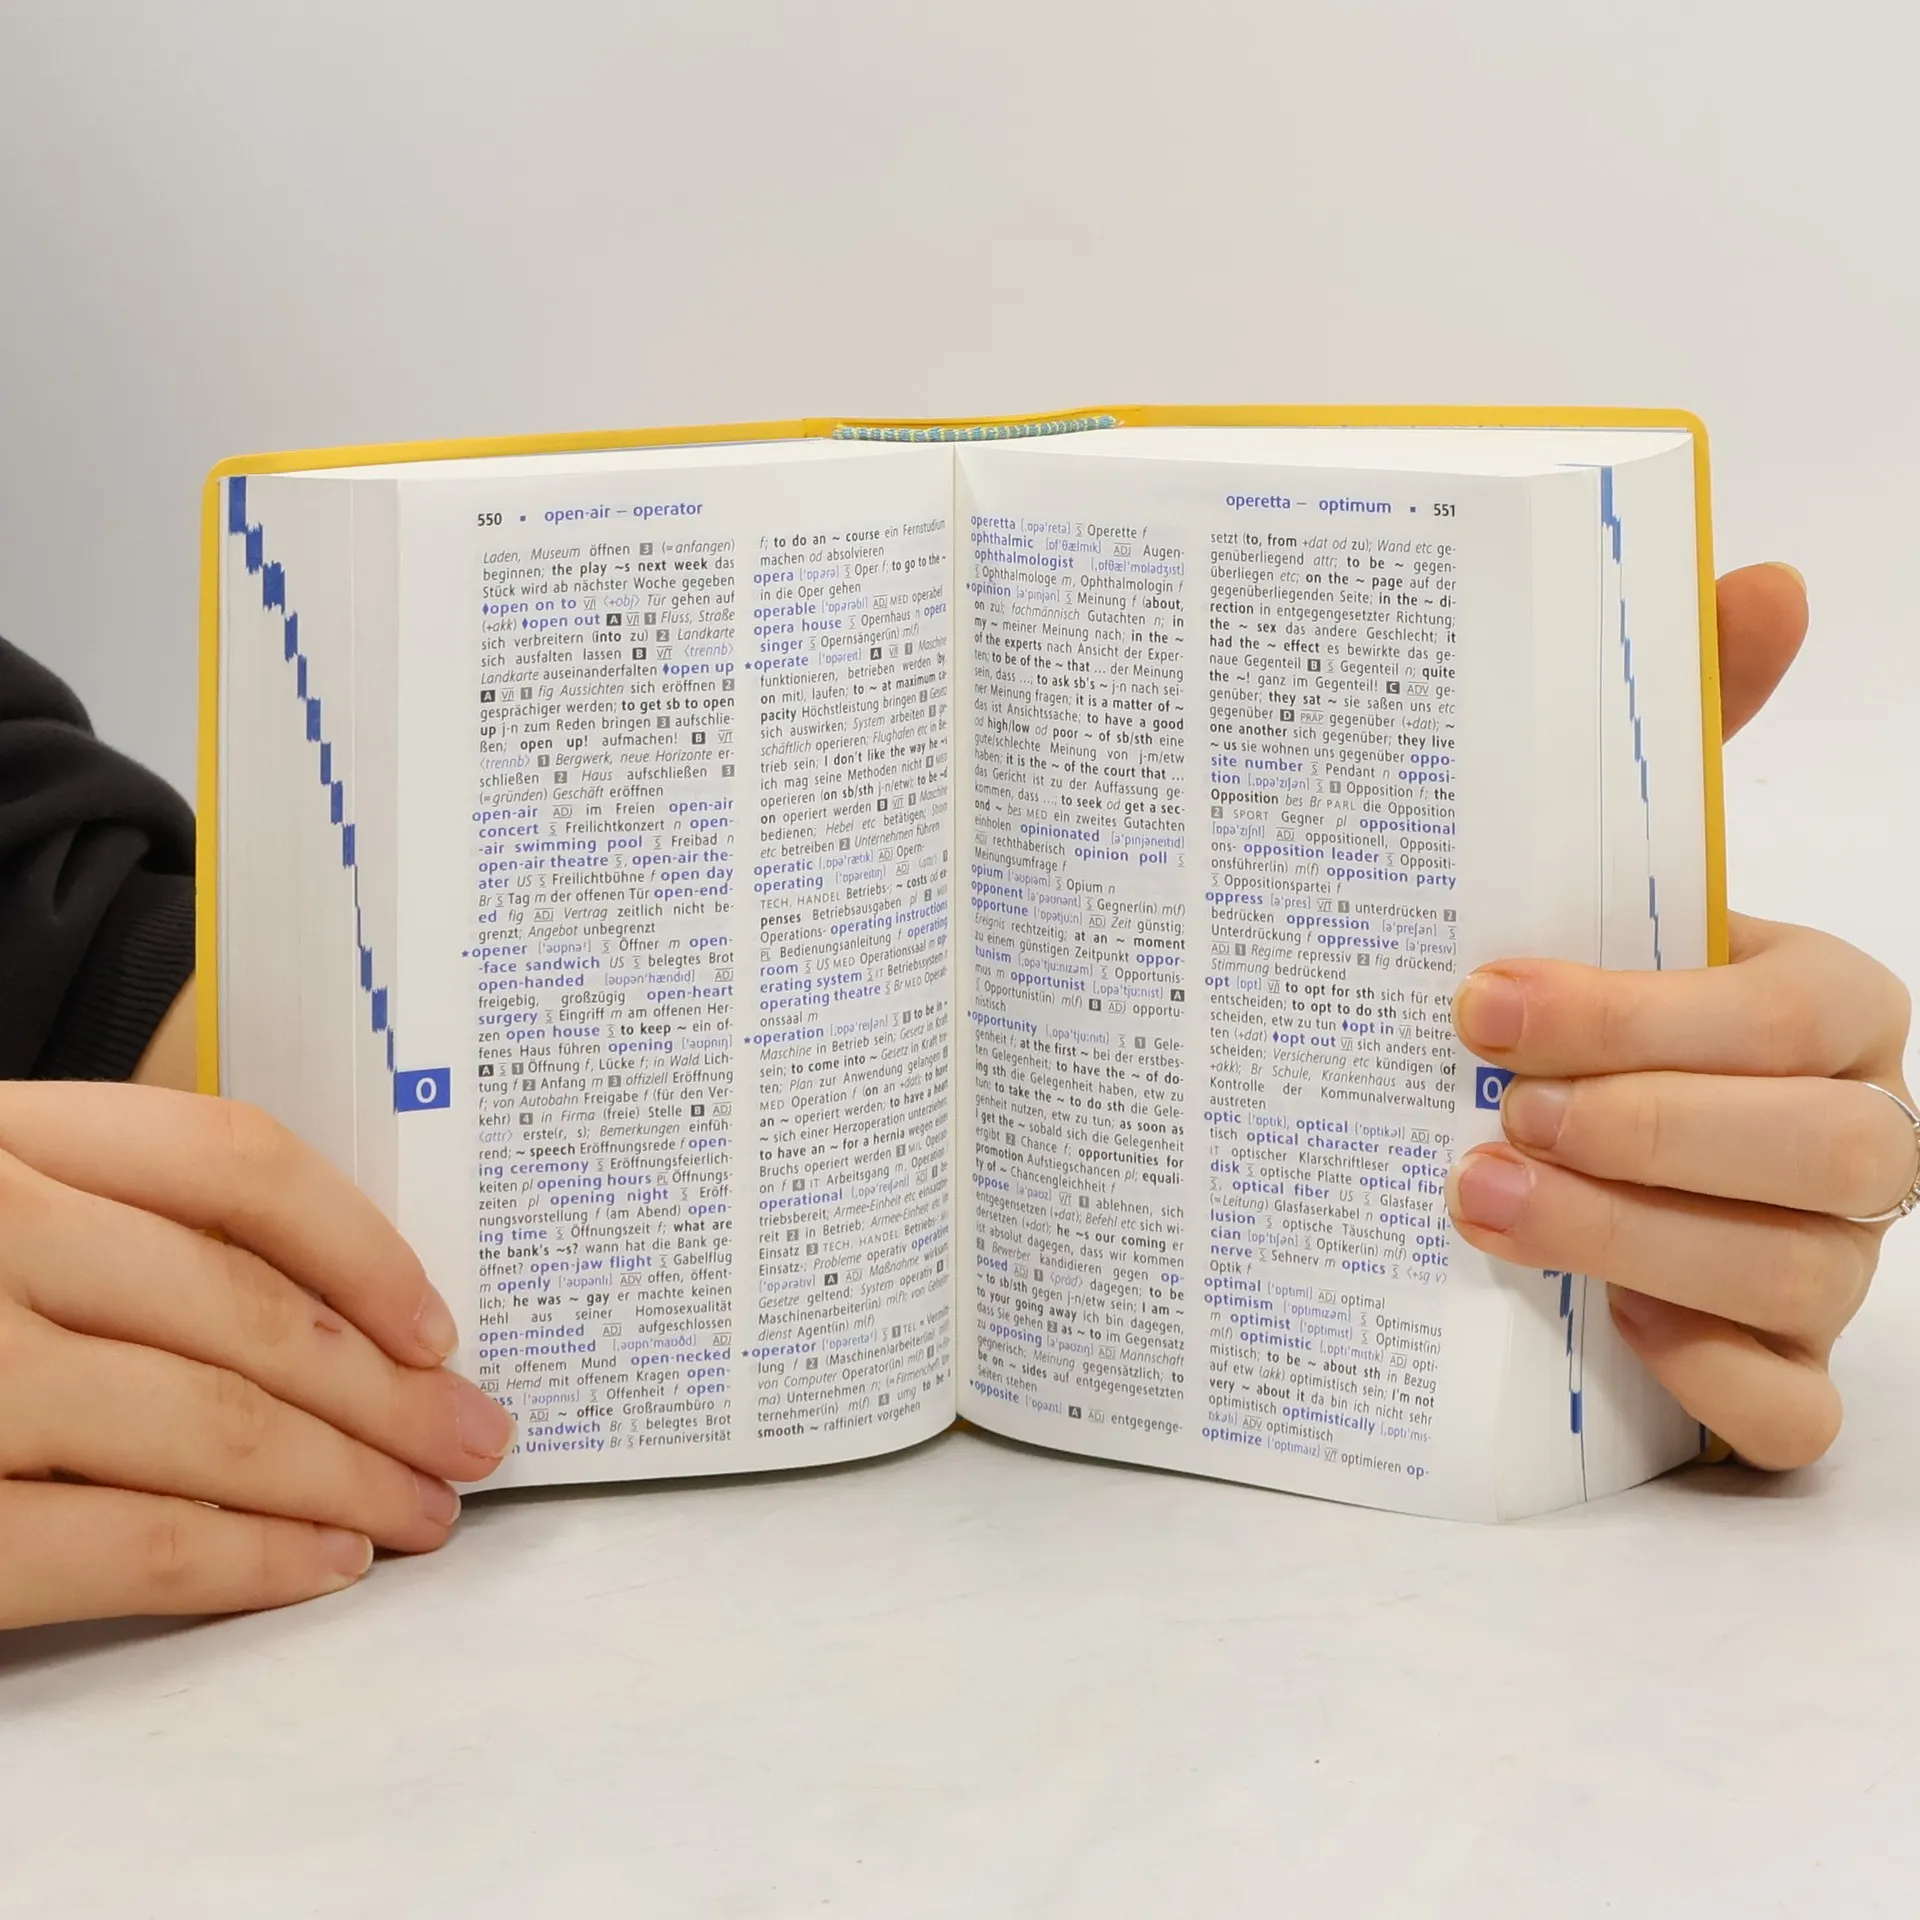 550 ▪ open-air – operator
Laden, Museum öffnen 3 (= anfangen)
beginnen; the play ~s next week das
Stück wird ab nächster Woche gegeben
♦open on to V/I ⟨+obj⟩ Tür gehen auf
(+akk) ♦open out A V/I 1 Fluss, Straße
sich verbreitern (into zu) 2 Landkarte
sich ausfalten lassen B V/T ⟨trennb⟩
Landkarte auseinanderfalten ♦open up
A V/I 1 fig Aussichten sich eröffnen 2
gesprächiger werden; to get sb to open
up j-n zum Reden bringen 3 aufschlie-
ßen; open up! aufmachen! B V/T
⟨trennb⟩ 1 Bergwerk, neue Horizonte er-
schließen 2 Haus aufschließen 3
(= gründen) Geschäft eröffnen
open-air ADJ im Freien open-air
concert S Freilichtkonzert n open-
-air swimming pool S Freibad n
open-air theatre S, open-air the-
ater US S Freilichtbühne f open day
Br S Tag m der offenen Tür open-end-
ed fig ADJ Vertrag zeitlich nicht be-
grenzt; Angebot unbegrenzt
★opener ['əʊpnəʳ] S Öffner m open-
-face sandwich US S belegtes Brot
open-handed [əʊpən'hændɪd] ADJ
freigebig, großzügig open-heart
surgery S Eingriff m am offenen Her-
zen open house S to keep ~ ein of-
fenes Haus führen opening ['əʊpnɪŋ]
A S 1 Öffnung f, Lücke f; in Wald Lich-
tung f 2 Anfang m 3 offiziell Eröffnung
f; von Autobahn Freigabe f (für den Ver-
kehr) 4 in Firma (freie) Stelle B ADJ
⟨attr⟩ erste(r, s); Bemerkungen einfüh-
rend; ~ speech Eröffnungsrede f open-
ing ceremony S Eröffnungsfeierlich-
keiten pl opening hours PL Öffnungs-
zeiten pl opening night S Eröff-
nungsvorstellung f (am Abend) open-
ing time S Öffnungszeit f; what are
the bank's ~s? wann hat die Bank ge-
öffnet? open-jaw flight S Gabelflug
m openly ['əʊpənlɪ] ADV offen, öffent-
lich; he was ~ gay er machte keinen
Hehl aus seiner Homosexualität
open-minded ADJ aufgeschlossen
open-mouthed [,əʊpn'maʊðd] ADJ
mit offenem Mund open-necked
ADJ Hemd mit offenem Kragen open-
ss ['əʊpnnɪs] S Offenheit f open-
ADJ ~ office Großraumbüro n
sandwich Br S belegtes Brot
University Br S Fernuniversität
f; to do an ~ course ein Fernstudium
machen od absolvieren
opera ['ɒpərə] S Oper f; to go to the ~
in die Oper gehen
operable ['ɒpərəbl] ADJ MED operabel
opera house S Opernhaus n opera
singer S Opernsänger(in) m(f)
★operate ['ɒpəreɪt] A V/I 1 Maschine
funktionieren, betrieben werden (by,
on mit), laufen; to ~ at maximum ca-
pacity Höchstleistung bringen 2 Gesetz
sich auswirken; System arbeiten 3 ge-
schäftlich operieren; Flughafen etc in Be-
trieb sein; I don't like the way he ~s
ich mag seine Methoden nicht 4 MED
operieren (on sb/sth j-n/etw); to be ~d
on operiert werden B V/T 1 Maschine
bedienen; Hebel etc betätigen; Strom
etc betreiben 2 Unternehmen führen
operatic [,ɒpə'rætɪk] ADJ Opern-
operating ['ɒpəreɪtɪŋ] ADJ ⟨attr⟩ 1
TECH, HANDEL Betriebs-; ~ costs od ex-
penses Betriebsausgaben pl 2 MED
Operations- operating instructions
PL Bedienungsanleitung f operating
room S US MED Operationssaal m op-
erating system S IT Betriebssystem n
operating theatre S Br MED Operati-
onssaal m
★operation [,ɒpə'reɪʃən] S 1 to be in ~
Maschine in Betrieb sein; Gesetz in Kraft
sein; to come into ~ Gesetz in Kraft tre-
ten; Plan zur Anwendung gelangen 2
MED Operation f (on an +dat); to have
an ~ operiert werden; to have a heart
~ sich einer Herzoperation unterziehen;
to have an ~ for a hernia wegen eines
Bruchs operiert werden 3 MIL Operati-
on f 4 IT Arbeitsgang m, Operation f
operational [,ɒpə'reɪʃənl] ADJ 1 be-
triebsbereit; Armee-Einheit etc einsatzbe-
reit 2 in Betrieb; Armee-Einheit etc im
Einsatz 3 TECH, HANDEL Betriebs-; MIL
Einsatz-; Probleme operativ operative
['ɒpərətɪv] A ADJ Maßnahme wirksam;
Gesetze geltend; System operativ B S
Maschinenarbeiter(in) m(f); von Geheim-
dienst Agent(in) m(f)
★operator ['ɒpəreɪtəʳ] S 1 TEL ≈ Vermitt-
lung f 2 (Maschinen)arbeiter(in) m(f);
von Computer Operator(in) m(f) 3 (= Fir-
ma) Unternehmen n; (= Firmenchef) Un-
ternehmer(in) m(f) 4 umg to be a
smooth ~ raffiniert vorgehen
O
operetta – optimum ▪ 551
operetta [,ɒpə'retə] S Operette f
ophthalmic [ɒf'θælmɪk] ADJ Augen-
ophthalmologist [,ɒfθæl'mɒlədʒɪst]
S Ophthalmologe m, Ophthalmologin f
★opinion [ə'pɪnjən] S Meinung f (about,
on zu); fachmännisch Gutachten n; in
my ~ meiner Meinung nach; in the ~
of the experts nach Ansicht der Exper-
ten; to be of the ~ that ... der Meinung
sein, dass ...; to ask sb's ~ j-n nach sei-
ner Meinung fragen; it is a matter of ~
das ist Ansichtssache; to have a good
od high/low od poor ~ of sb/sth eine
gute/schlechte Meinung von j-m/etw
haben; it is the ~ of the court that ...
das Gericht ist zu der Auffassung ge-
kommen, dass ...; to seek od get a sec-
ond ~ bes MED ein zweites Gutachten
einholen opinionated [ə'pɪnjəneɪtɪd]
ADJ rechthaberisch opinion poll S
Meinungsumfrage f
opium ['əʊpɪəm] S Opium n
opponent [ə'pəʊnənt] S Gegner(in) m(f)
opportune ['ɒpətju:n] ADJ Zeit günstig;
Ereignis rechtzeitig; at an ~ moment
zu einem günstigen Zeitpunkt oppor-
tunism [,ɒpə'tju:nɪzəm] S Opportunis-
mus m opportunist [,ɒpə'tju:nɪst] A
S Opportunist(in) m(f) B ADJ opportu-
nistisch
★opportunity [,ɒpə'tju:nɪtɪ] S 1 Gele-
genheit f; at the first ~ bei der erstbes-
ten Gelegenheit; to have the ~ of do-
ing sth die Gelegenheit haben, etw zu
tun; to take the ~ to do sth die Gele-
genheit nutzen, etw zu tun; as soon as
I get the ~ sobald sich die Gelegenheit
ergibt 2 Chance f; opportunities for
promotion Aufstiegschancen pl; equali-
ty of ~ Chancengleichheit f
oppose [ə'pəʊz] V/T 1 ablehnen, sich
entgegensetzen (+dat); Befehl etc sich wi-
dersetzen (+dat); he ~s our coming er
ist absolut dagegen, dass wir kommen
2 Bewerber kandidieren gegen op-
posed ADJ 1 ⟨präd⟩ dagegen; to be
~ to sb/sth gegen j-n/etw sein; I am ~
to your going away ich bin dagegen,
dass Sie gehen 2 as ~ to im Gegensatz
zu opposing [ə'pəʊzɪŋ] ADJ Mannschaft
gegnerisch; Meinung gegensätzlich; to
be on ~ sides auf entgegengesetzten
Seiten stehen
★opposite ['ɒpəzɪt] A ADJ entgegenge-
setzt (to, from +dat od zu); Wand etc ge-
genüberliegend attr; to be ~ gegen-
überliegen etc; on the ~ page auf der
gegenüberliegenden Seite; in the ~ di-
rection in entgegengesetzter Richtung;
the ~ sex das andere Geschlecht; it
had the ~ effect es bewirkte das ge-
naue Gegenteil B S Gegenteil n; quite
the ~! ganz im Gegenteil! C ADV ge-
genüber; they sat ~ sie saßen uns etc
gegenüber D PRÄP gegenüber (+dat); ~
one another sich gegenüber; they live
~ us sie wohnen uns gegenüber oppo-
site number S Pendant n opposi-
tion [,ɒpə'zɪʃən] S 1 Opposition f; the
Opposition bes Br PARL die Opposition
2 SPORT Gegner pl oppositional
[ɒpə'zɪʃnl] ADJ oppositionell, Oppositi-
ons- opposition leader S Oppositi-
onsführer(in) m(f) opposition party
S Oppositionspartei f
oppress [ə'pres] V/T 1 unterdrücken 2
bedrücken oppression [ə'preʃən] S
Unterdrückung f oppressive [ə'presɪv]
ADJ 1 Regime repressiv 2 fig drückend;
Stimmung bedrückend
opt [ɒpt] V/I to opt for sth sich für etw
entscheiden; to opt to do sth sich ent
scheiden, etw zu tun ♦opt in V/I beitre-
ten (+dat) ♦opt out V/I sich anders ent-
scheiden; Versicherung etc kündigen (of
+akk); Br Schule, Krankenhaus aus der
Kontrolle der Kommunalverwaltung
austreten
optic ['ɒptɪk], optical ['ɒptɪkəl] ADJ op-
tisch optical character reader S
IT optischer Klarschriftleser optica
disk S optische Platte optical fibr
S, optical fiber US S Glasfaser f
(= Leitung) Glasfaserkabel n optical il-
lusion S optische Täuschung opti-
cian [ɒp'tɪʃən] S Optiker(in) m(f) optic
nerve S Sehnerv m optics S ⟨+sg v⟩
Optik f
optimal ['ɒptɪml] ADJ optimal
optimism ['ɒptɪmɪzəm] S Optimismus
m optimist ['ɒptɪmɪst] S Optimist(in)
m(f) optimistic [,ɒptɪ'mɪstɪk] ADJ opti-
mistisch; to be ~ about sth in Bezug
auf etw (akk) optimistisch sein; I'm not
very ~ about it da bin ich nicht sehr
optimistisch optimistically [,ɒptɪ'mɪs-
tɪkəlɪ] ADV optimistisch
optimize ['ɒptɪmaɪz] V/T optimieren op-
O